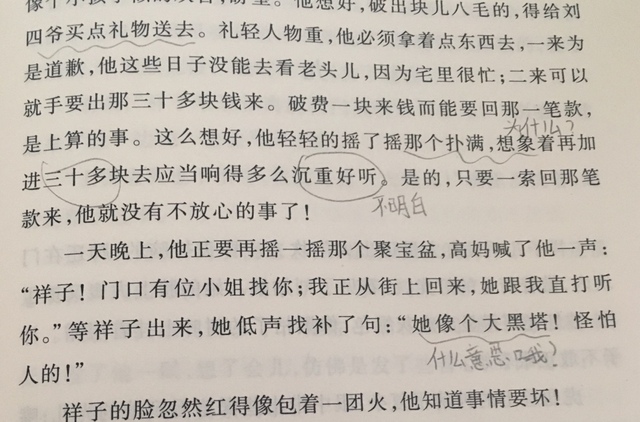 四爷买点礼物送去。礼轻人物重，他必须拿着点东西去，一来为
是道歉，他这些日子没能去看老头儿，因为宅里很忙；二来可以
就手要出那三十多块钱来。破费一块来钱而能要回那一笔款，
是上算的事。这么想好，他轻轻的摇了摇那个扑满，想象着再加
为什么？
进三十多块去应当响得多么沉重好听。是的，只要一索回那笔
不明白
款来，他就没有不放心的事了！
一天晚上，他正要再摇一摇那个聚宝盆，高妈喊了他一声：
“祥子！门口有位小姐找你；我正从街上回来，她跟我直打听
你。”等祥子出来，她低声找补了句：“她像个大黑塔！怪怕
什么意思哦？
人的！”
祥子的脸忽然红得像包着一团火，他知道事情要坏！